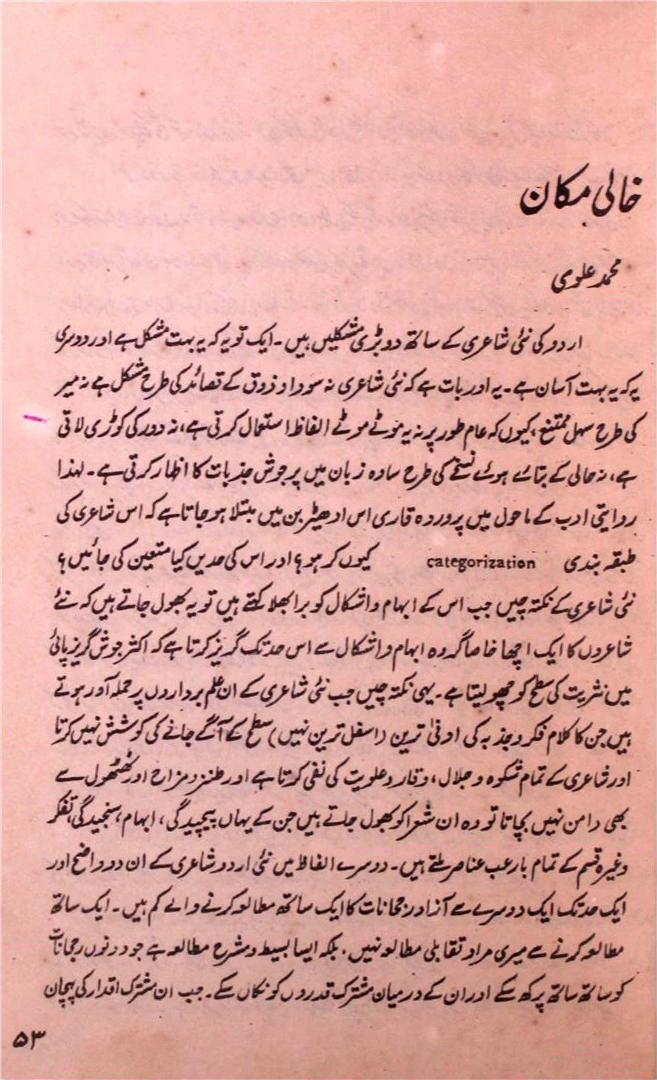 خالی مکان
محمد علوی
اردو کی نئی شاعری کے ساتھ دو بڑی مشکلیں ہیں۔ ایک تو یہ کہ یہ بہت مشکل ہے اور دوسری
یہ کہ یہ بہت آسان ہے۔ یہ اور بات ہے کہ نئی شاعری نہ سودا و ذوق کے قصائد کی طرح مشکل ہے نہ میر
کی طرح سہل ممتنع، کیوں کہ عام طور پر نہ یہ موٹے موٹے الفاظ استعمال کرتی ہے، نہ دور کی کوڑی لاتی
ہے، نہ حالی کے بتائے ہوئے نسخے کی طرح سادہ زبان میں پرجوش جذبات کا اظہار کرتی ہے۔ لہذا
روایتی ادب کے ماحول میں پروردہ قاری اس ادھیڑبن میں مبتلا ہو جاتا ہے کہ اس شاعری کی
طبقہ بندی categorization کیوں کر ہو؟ اور اس کی حدیں کیا متعین کی جائیں؟
نئی شاعری کے نکتہ چیں جب اس کے ابہام و اشکال کو برا بھلا کہتے ہیں تو یہ بھول جاتے ہیں کہ نئے
شاعروں کا ایک اچھا خاصا گروہ ابہام و اشکال سے اس حد تک گریز کرتا ہے کہ اکثر جوش گریز پائی
میں نثریت کی سطح کو چھو لیتا ہے۔ یہی نکتہ چیں جب نئی شاعری کے ان علم برداروں پر حملہ آور ہوتے
ہیں جن کا کلام فکر و جذبہ کی ادنیٰ ترین (اسفل ترین نہیں) سطح کے آگے جانے کی کوشش نہیں کرتا
اور شاعری کے تمام شکوہ و جلال، وقار و علویت کی نفی کرتا ہے اور طنز و مزاح اور ٹھٹھول سے
بھی دامن نہیں بچاتا تو وہ ان شعرا کو بھول جاتے ہیں جن کے یہاں پیچیدگی، ابہام، سنجیدگی، تفکر
وغیرہ قسم کے تمام بارعب عناصر ملتے ہیں۔ دوسرے الفاظ میں نئی اردو شاعری کے ان دو واضح اور
ایک حد تک ایک دوسرے سے آزاد رجحانات کا ایک ساتھ مطالعہ کرنے والے کم ہیں۔ ایک ساتھ
مطالعہ کرنے سے میری مراد تقابلی مطالعہ نہیں، بلکہ ایسا بسیط و مشرح مطالعہ ہے جو دونوں رجحانات
کو ساتھ ساتھ پرکھ سکے اور ان کے درمیان مشترک قدروں کو نکال سکے۔ جب ان مشترک اقدار کی پہچان
۵۳